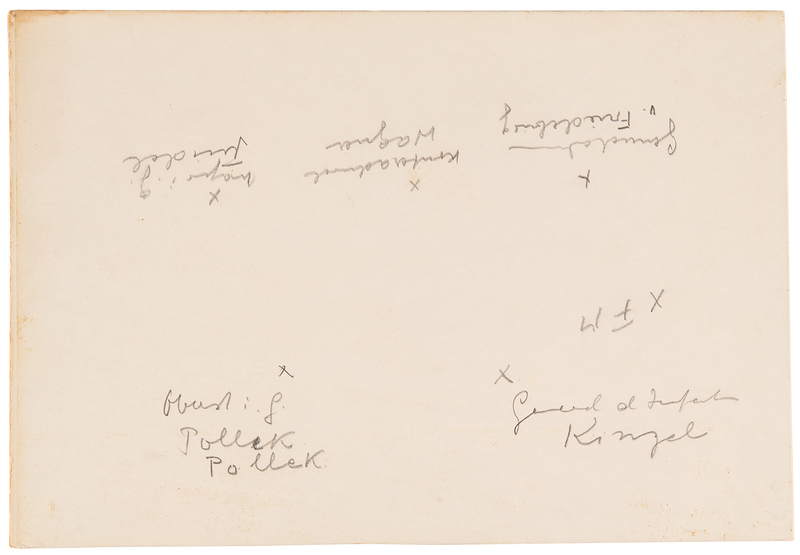 Generaladm
v. Friedeburg
Konteradmiral
Wagner
Major i. G.
Friedel
x
x
x
x
FM
x
x
Oberst i. G.
Pollek
Pollek
General d Infant
Kinzel